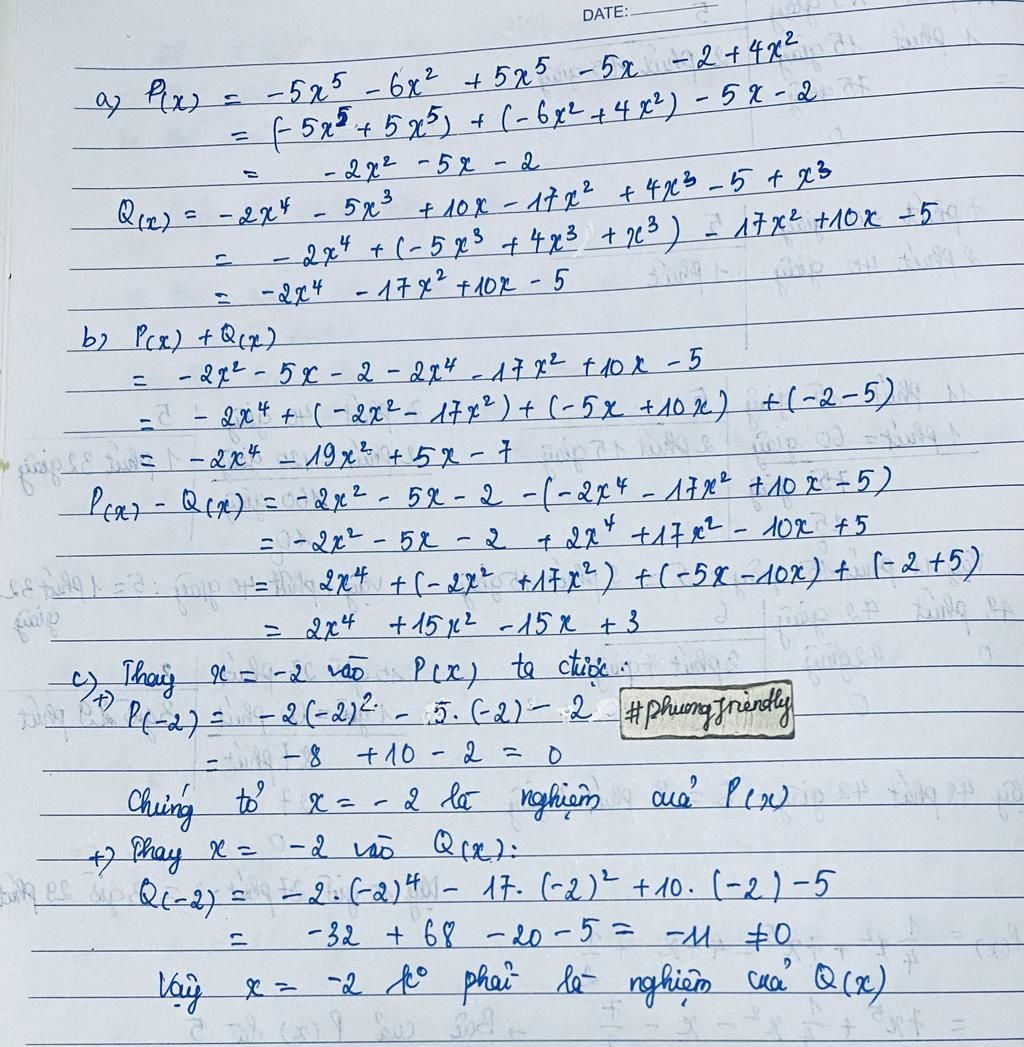 DATE:
a) P(x) = -5x⁵ - 6x² + 5x⁵ - 5x - 2 + 4x²
= (-5x⁵ + 5x⁵) + (-6x² + 4x²) - 5x - 2
= -2x² - 5x - 2
Q(x) = -2x⁴ - 5x³ + 10x - 17x² + 4x³ - 5 + x³
= -2x⁴ + (-5x³ + 4x³ + x³) - 17x² + 10x - 5
= -2x⁴ - 17x² + 10x - 5
b) P(x) + Q(x)
= -2x² - 5x - 2 - 2x⁴ - 17x² + 10x - 5
= -2x⁴ + (-2x² - 17x²) + (-5x + 10x) + (-2 - 5)
= -2x⁴ - 19x² + 5x - 7
P(x) - Q(x) = -2x² - 5x - 2 - (-2x⁴ - 17x² + 10x - 5)
= -2x² - 5x - 2 + 2x⁴ + 17x² - 10x + 5
= 2x⁴ + (-2x² + 17x²) + (-5x - 10x) + (-2 + 5)
= 2x⁴ + 15x² - 15x + 3
c) Thay x = -2 vào P(x) ta được:
+) P(-2) = -2(-2)² - 5.(-2) - 2
#phuongfriendly
= -8 + 10 - 2 = 0
Chứng tỏ x = -2 là nghiệm của P(x)
+) Thay x = -2 vào Q(x):
Q(-2) = -2.(-2)⁴ - 17.(-2)² + 10.(-2) - 5
= -32 + 68 - 20 - 5 = -11 ≠ 0
Vậy x = -2 k° phải là nghiệm của Q(x)